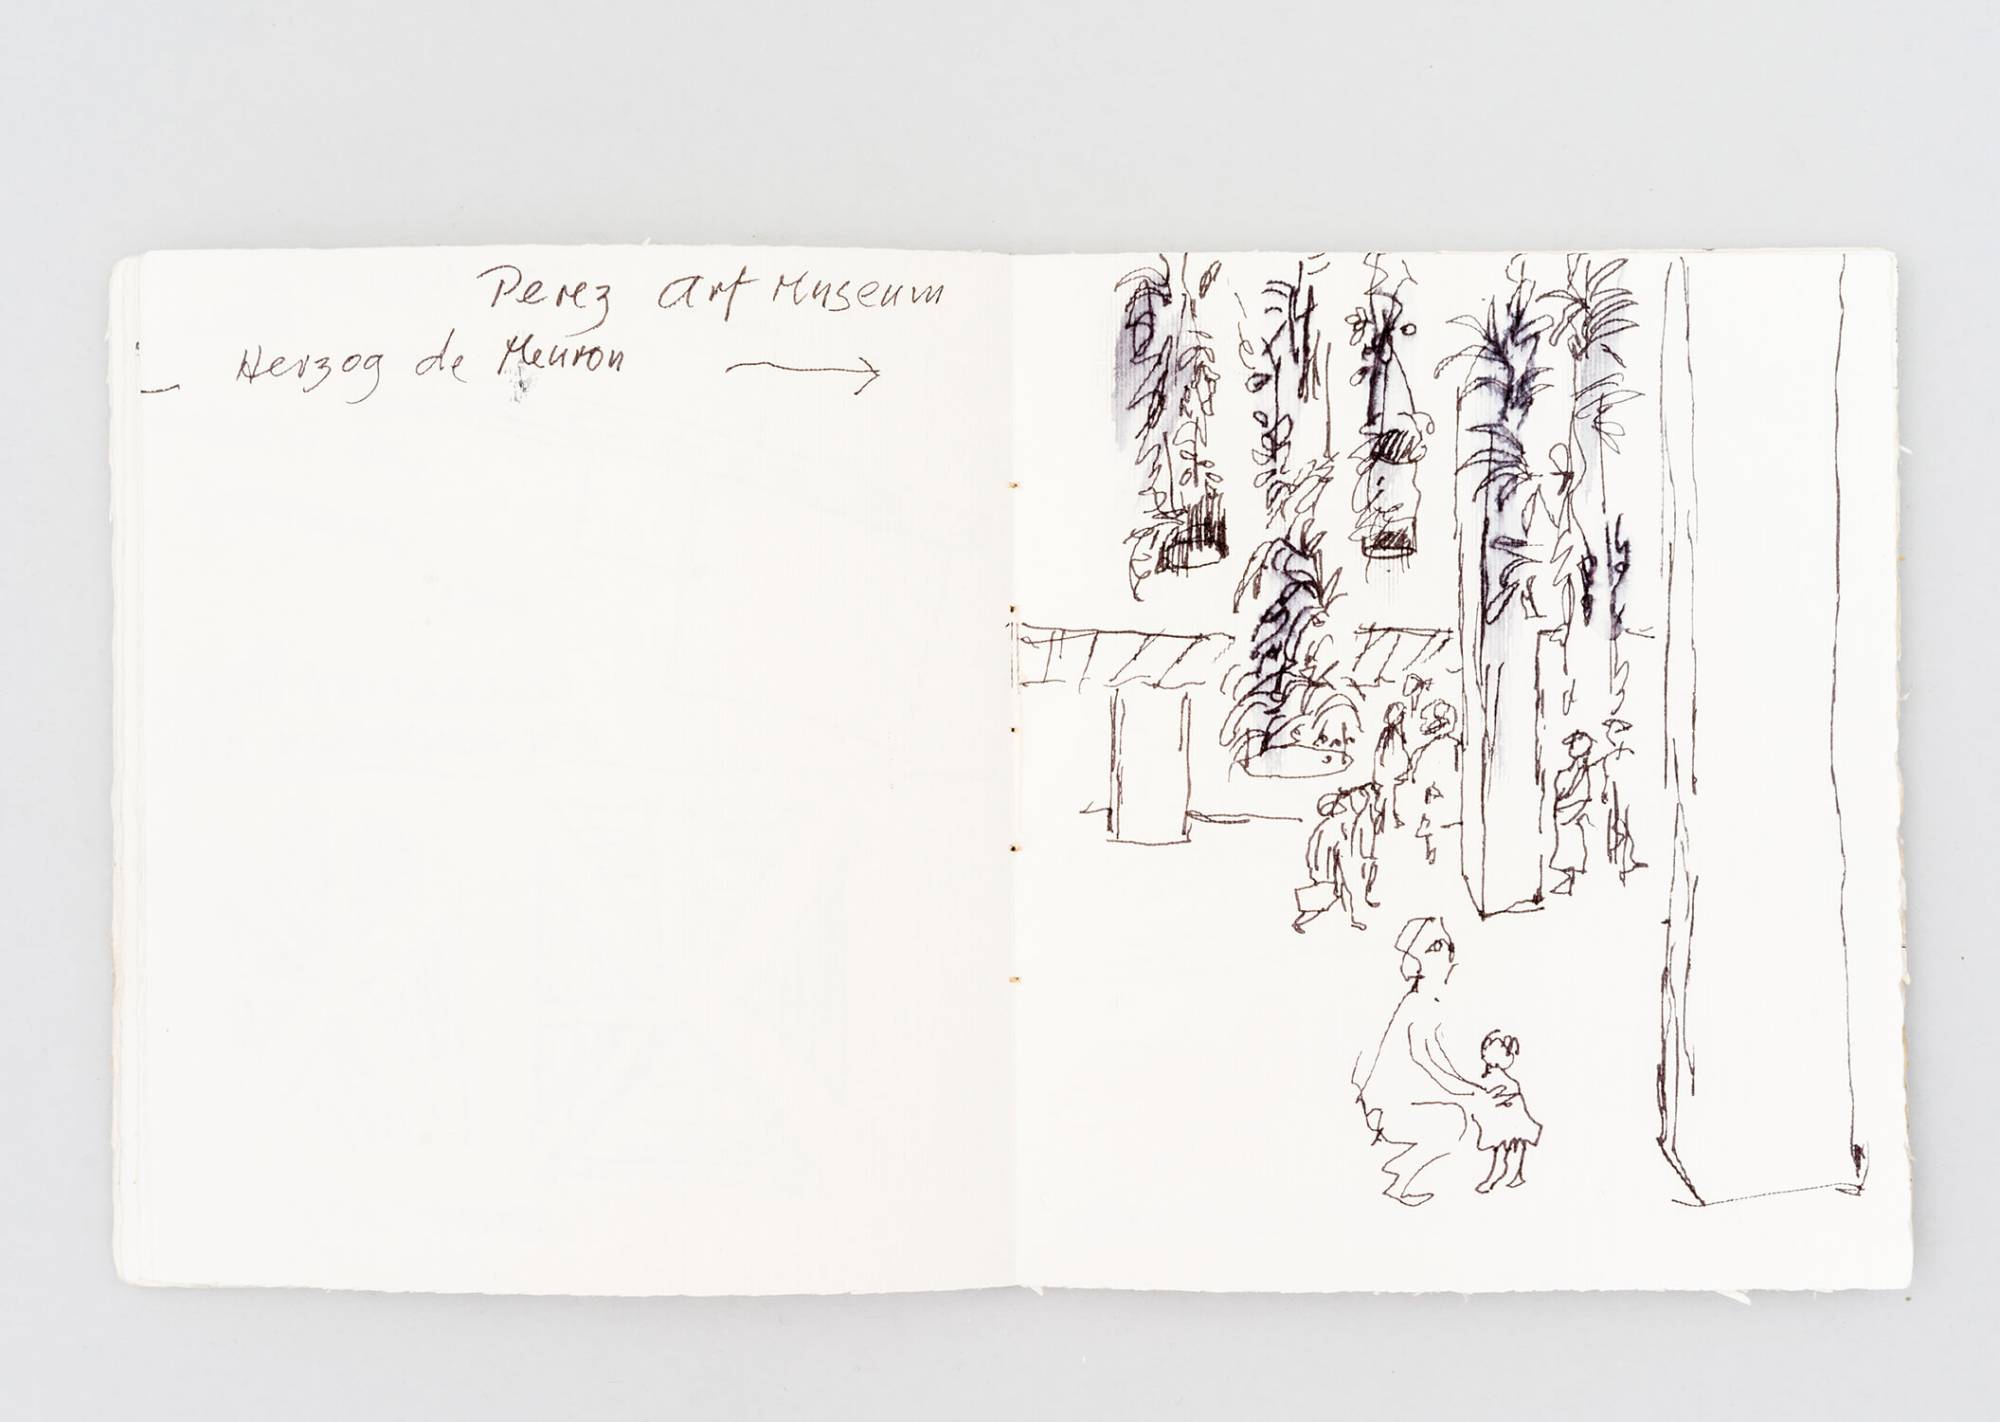 Perez Art Museum
Herzog de Meuron →